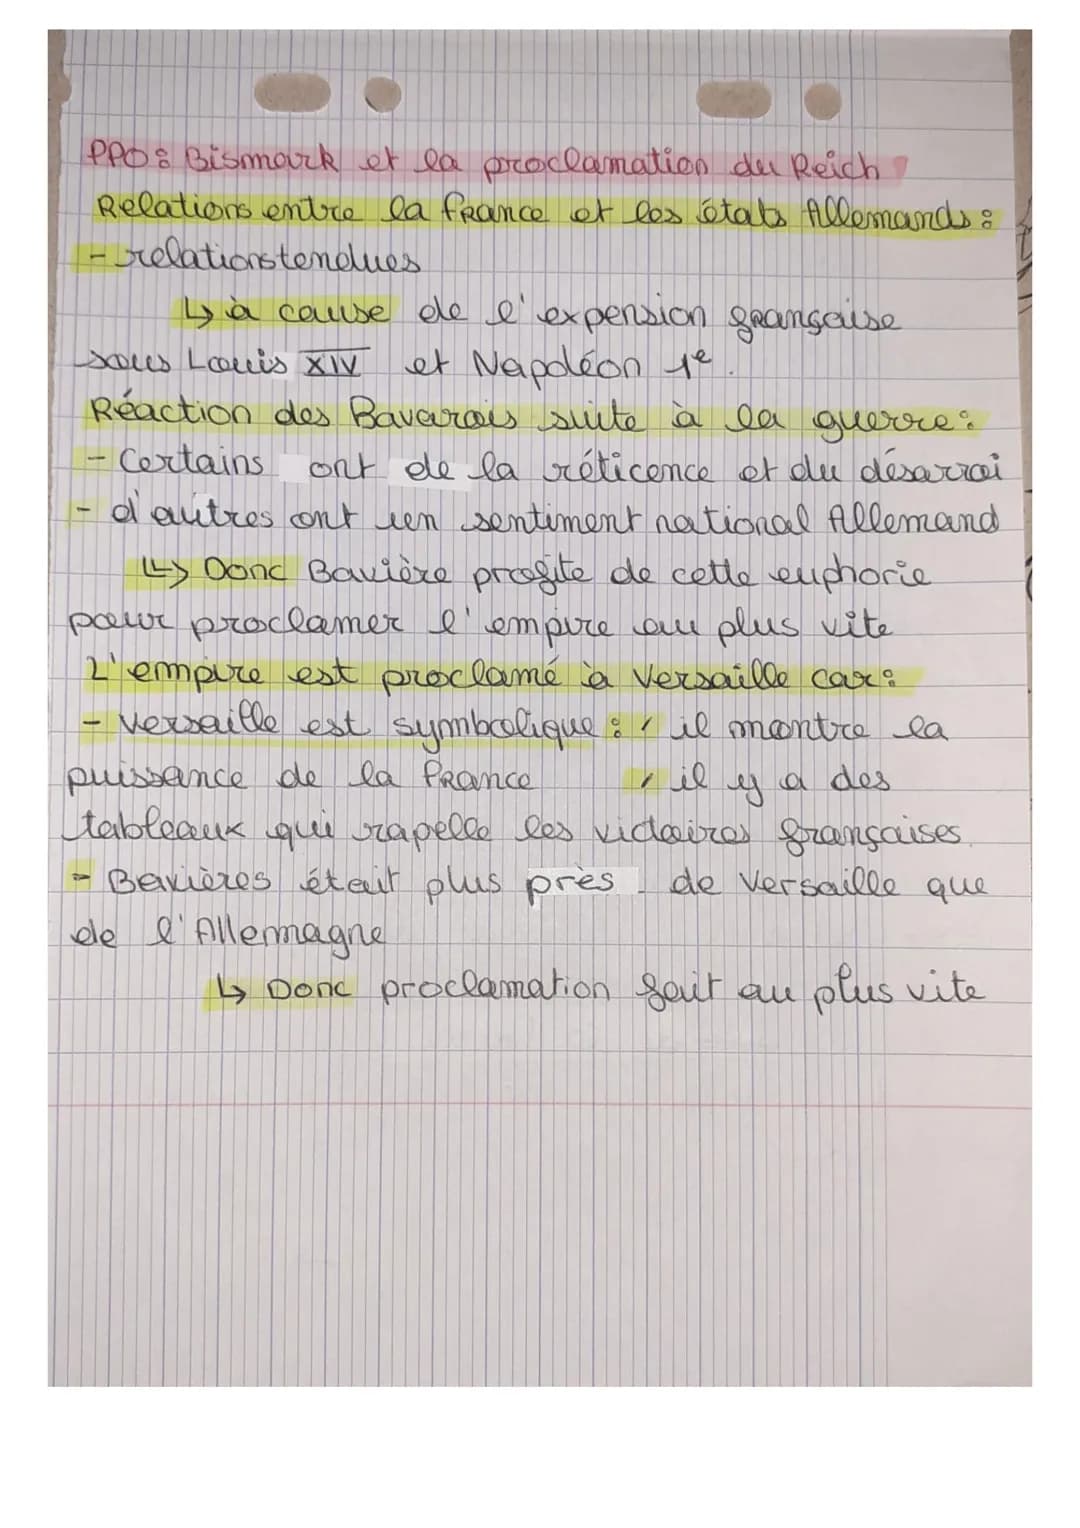 PPO : Bismark et la proclamation du Reich
Relations entre la france et les états Allemands :
- relations tendues
↳ à cause de l'expension française
sous Louis XIV et Napoléon 1e.
Réaction des Bavarois suite à la guerre :
- Certains ont de la réticence et du désarroi
- d'autres ont un sentiment national Allemand
↳ Donc Bavière profite de cette euphorie
pour proclamer l'empire au plus vite
L'empire est proclamé à Versaille car :
- Versaille est symbolique : / il montre la
puissance de la France / il y a des
tableaux qui rapelle les victoires françaises.
- Bavières était plus près de Versaille que
de l'Allemagne
↳ Donc proclamation fait au plus vite